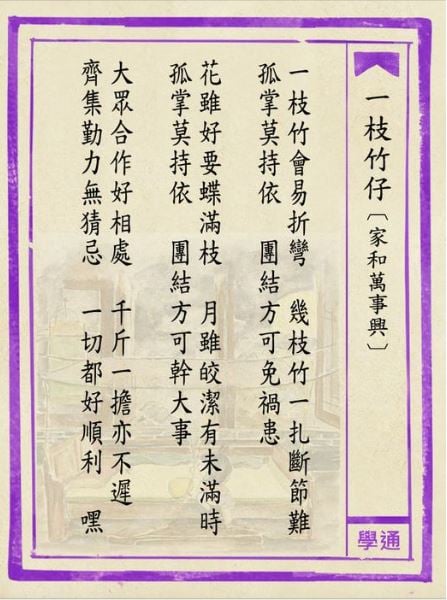 一枝竹仔〔家和萬事興〕
一枝竹會易折彎　幾枝竹一扎斷節難
孤掌莫持依　團結方可免禍患
花雖好要蝶滿枝　月雖皎潔有未滿時
孤掌莫持依　團結方可幹大事
大眾合作好相處　千斤一擔亦不遲
齊集勤力無猜忌　一切都好順利　嘿
學通